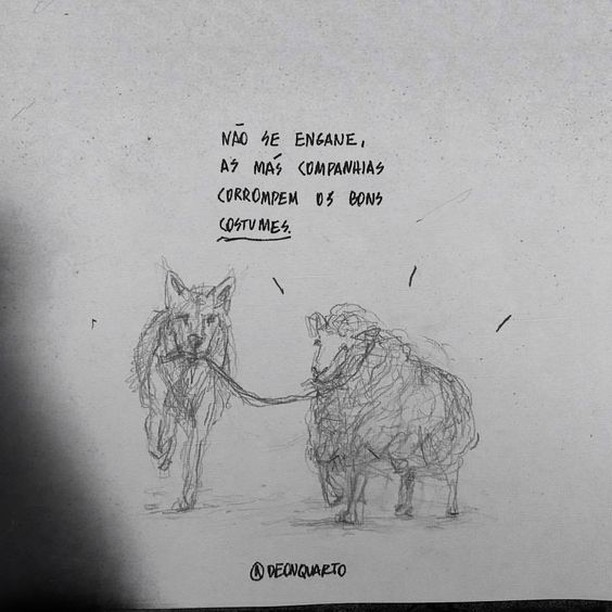 NÃO SE ENGANE,
AS MÁS COMPANHIAS
CORROMPEM OS BONS
COSTUMES.
@DEONQUARTO